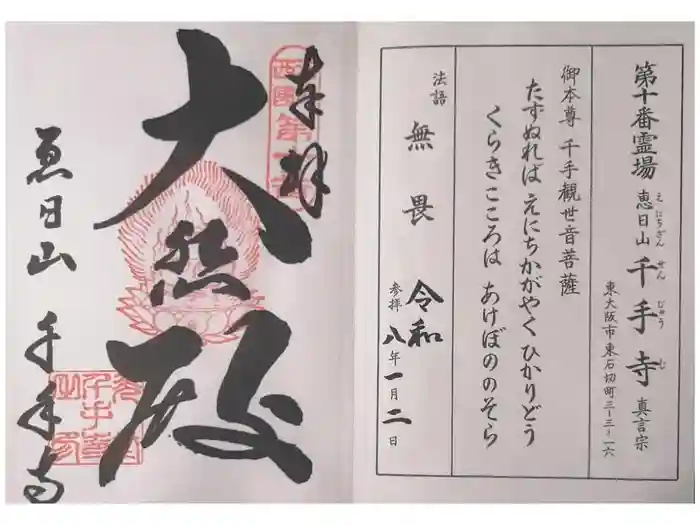 第十番霊場 恵日山 千手寺 真言宗
えにちざん せんじゅうじ
東大阪市東石切町三−三−一六
御本尊 千手観世音菩薩
たずぬれば えにちかがやく ひかりどう
くらきこころは あけぼののそら
法語
無畏
参拝 令和八年一月二日
奉拝
大悲殿
恵日山 千手寺